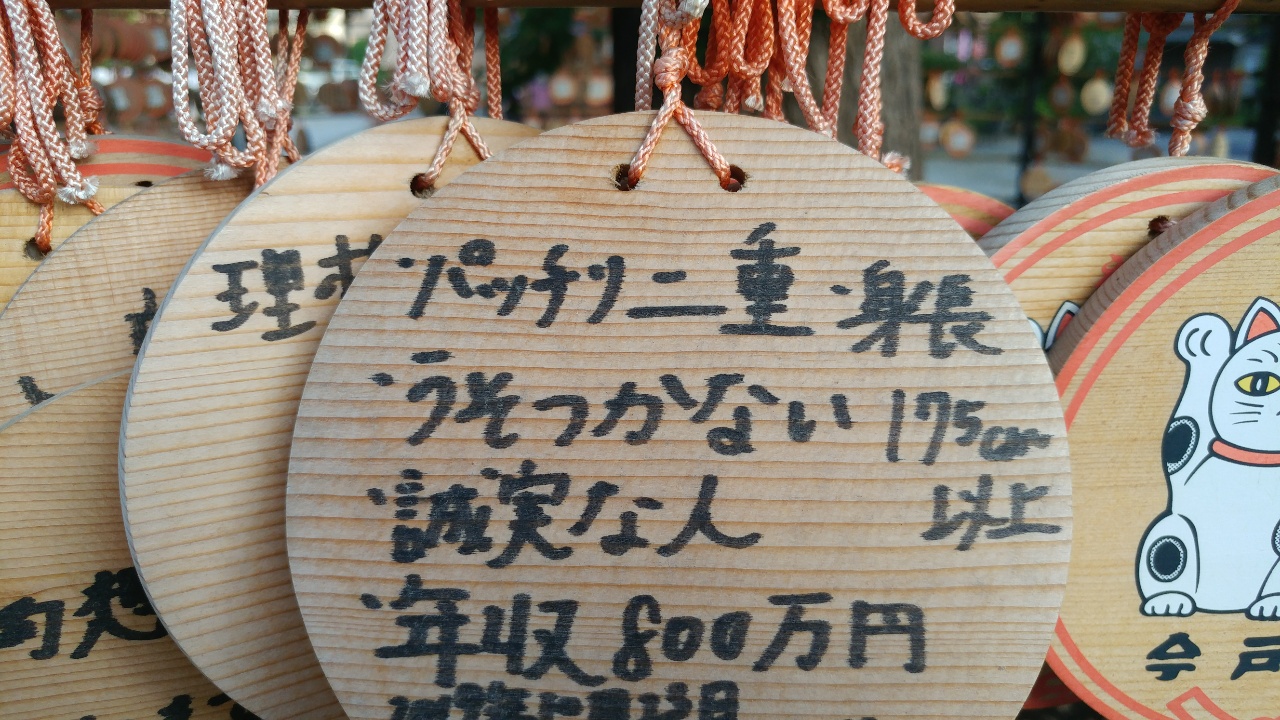 ・パッチリ二重
・身長
175cm
以上
・うそつかない
・誠実な人
・年収800万円
理
的想
今戸